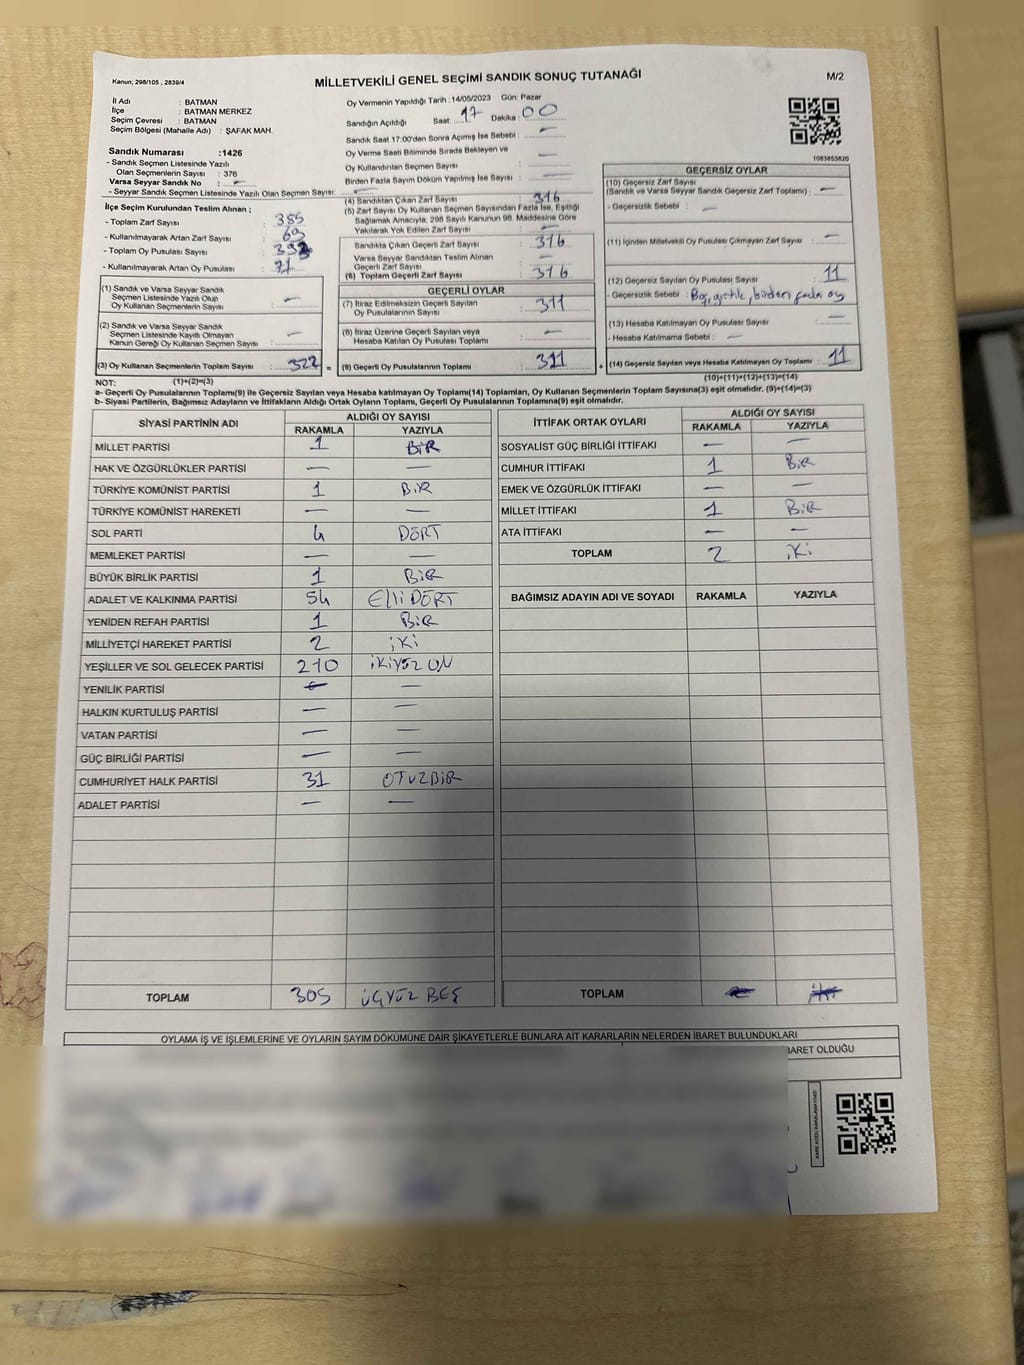 Kanun; 298/105 , 2839/4
MİLLETVEKİLİ GENEL SEÇİMİ SANDIK SONUÇ TUTANAĞI
M/2
İl Adı : BATMAN
İlçe : BATMAN MERKEZ
Seçim Çevresi : BATMAN
Seçim Bölgesi (Mahalle Adı) : ŞAFAK MAH.
Sandık Numarası :1426
- Sandık Seçmen Listesinde Yazılı
Olan Seçmenlerin Sayısı : 376
Varsa Seyyar Sandık No : —
- Seyyar Sandık Seçmen Listesinde Yazılı Olan Seçmen Sayısı: —
Oy Vermenin Yapıldığı Tarih :14/05/2023 Gün: Pazar
Sandığın Açıldığı Saat: 17 Dakika : 00
Sandık Saat 17:00'den Sonra Açımış İse Sebebi : —
Oy Verme Saati Bitiminde Sırada Bekleyen ve
Oy Kullandırılan Seçmen Sayısı : —
Birden Fazla Sayım Döküm Yapılmış İse Sayısı : —
1083853820
İlçe Seçim Kurulundan Teslim Alınan ;
- Toplam Zarf Sayısı : 385
- Kullanılmayarak Artan Zarf Sayısı : 69
- Toplam Oy Pusulası Sayısı : 393
- Kullanılmayarak Artan Oy Pusulası : 71
(1) Sandık ve Varsa Seyyar Sandık
Seçmen Listesinde Yazılı Olup
Oy Kullanan Seçmenlerin Sayısı : —
(2) Sandık ve Varsa Seyyar Sandık
Seçmen Listesinde Kayıtlı Olmayan
Kanun Gereği Oy Kullanan Seçmen Sayısı : —
(3) Oy Kullanan Seçmenlerin Toplam Sayısı : 322 =
(4) Sandıktan Çıkan Zarf Sayısı : 316
(5) Zarf Sayısı Oy Kullanan Seçmen Sayısından Fazla İse, Eşitliği
Sağlamak Amacıyla, 298 Sayılı Kanunun 98. Maddesine Göre
Yakılarak Yok Edilen Zarf Sayısı : —
Sandıkta Çıkan Geçerli Zarf Sayısı : 316
Varsa Seyyar Sandıktan Teslim Alınan
Geçerli Zarf Sayısı : —
(6) Toplam Geçerli Zarf Sayısı : 316
GEÇERLİ OYLAR
(7) İtiraz Edilmeksizin Geçerli Sayılan
Oy Pusulalarının Sayısı : 311
(8) İtiraz Üzerine Geçerli Sayılan veya
Hesaba Katılan Oy Pusulası Toplamı : —
(9) Geçerli Oy Pusulalarının Toplamı : 311 +
GEÇERSİZ OYLAR
(10) Geçersiz Zarf Sayısı
(Sandık ve Varsa Seyyar Sandık Geçersiz Zarf Toplamı) : —
- Geçersizlik Sebebi : —
(11) İçinden Milletvekili Oy Pusulası Çıkmayan Zarf Sayısı : —
(12) Geçersiz Sayılan Oy Pusulası Sayısı : 11
- Geçersizlik Sebebi : Boş, yırtık, birden fazla oy
(13) Hesaba Katılmayan Oy Pusulası Sayısı : —
- Hesaba Katılmama Sebebi : —
(14) Geçersiz Sayılan veya Hesaba Katılmayan Oy Toplamı : 11
NOT: (1)+(2)=(3) (10)+(11)+(12)+(13)=(14)
a- Geçerli Oy Pusulalarının Toplamı(9) ile Geçersiz Sayılan veya Hesaba katılmayan Oy Toplamı(14) Toplamları, Oy Kullanan Seçmenlerin Toplam Sayısına(3) eşit olmalıdır. (9)+(14)=(3)
b- Siyasi Partilerin, Bağımsız Adayların ve İttifakların Aldığı Ortak Oyların Toplamı, Geçerli Oy Pusulalarının Toplamına(9) eşit olmalıdır.
SİYASİ PARTİNİN ADI ALDIĞI OY SAYISI
RAKAMLA YAZIYLA
MİLLET PARTİSİ 1 BİR
HAK VE ÖZGÜRLÜKLER PARTİSİ — —
TÜRKİYE KOMÜNİST PARTİSİ 1 BİR
TÜRKİYE KOMÜNİST HAREKETİ — —
SOL PARTİ 4 DÖRT
MEMLEKET PARTİSİ — —
BÜYÜK BİRLİK PARTİSİ 1 BİR
ADALET VE KALKINMA PARTİSİ 54 ELLİ DÖRT
YENİDEN REFAH PARTİSİ 1 BİR
MİLLİYETÇİ HAREKET PARTİSİ 2 İKİ
YEŞİLLER VE SOL GELECEK PARTİSİ 210 İKİYÜZ ON
YENİLİK PARTİSİ — —
HALKIN KURTULUŞ PARTİSİ — —
VATAN PARTİSİ — —
GÜÇ BİRLİĞİ PARTİSİ — —
CUMHURİYET HALK PARTİSİ 31 OTUZBİR
ADALET PARTİSİ — —
TOPLAM 305 ÜÇYÜZ BEŞ
İTTİFAK ORTAK OYLARI ALDIĞI OY SAYISI
RAKAMLA YAZIYLA
SOSYALİST GÜÇ BİRLİĞİ İTTİFAKI — —
CUMHUR İTTİFAKI 1 BİR
EMEK VE ÖZGÜRLÜK İTTİFAKI — —
MİLLET İTTİFAKI 1 BİR
ATA İTTİFAKI — —
TOPLAM 2 İKİ
BAĞIMSIZ ADAYIN ADI VE SOYADI RAKAMLA YAZIYLA
TOPLAM
OYLAMA İŞ VE İŞLEMLERİNE VE OYLARIN SAYIM DÖKÜMÜNE DAİR ŞİKAYETLERLE BUNLARA AİT KARARLARIN NELERDEN İBARET BULUNDUKLARI
BARET OLDUĞU
KARE KODU KARALAMAYINIZ!